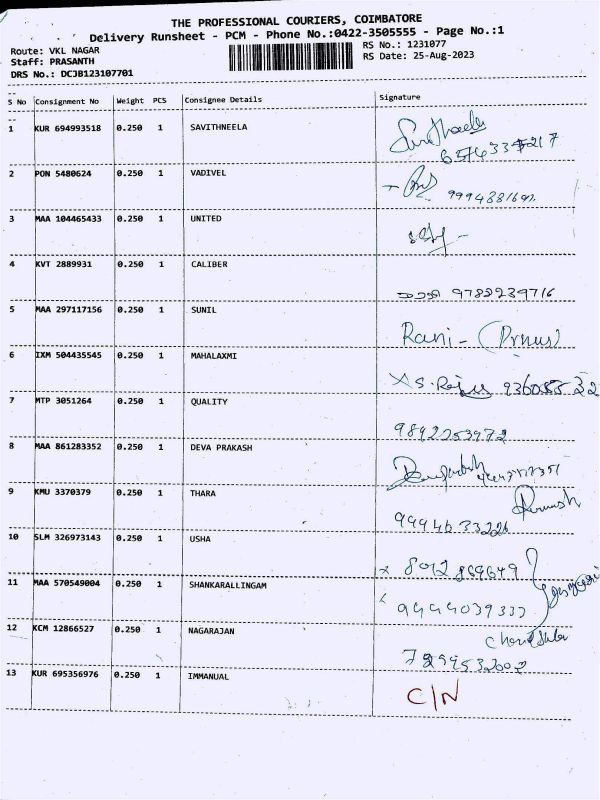 THE PROFESSIONAL COURIERS, COIMBATORE
Delivery Runsheet - PCM - Phone No.:0422-3505555 - Page No.:1
Route: VKL NAGAR RS No.: 1231077
Staff: PRASANTH RS Date: 25-Aug-2023
DRS No.: DCJB123107701
S No Consignment No Weight PCS Consignee Details Signature
1 KUR 694993518 0.250 1 SAVITHNEELA
2 PON 5480624 0.250 1 VADIVEL
3 MAA 104465433 0.250 1 UNITED
4 KVT 2889931 0.250 1 CALIBER
9789239716
5 MAA 297117156 0.250 1 SUNIL
Rani -
6 IXM 504435545 0.250 1 MAHALAXMI
7 MTP 3051264 0.250 1 QUALITY
8 MAA 861283352 0.250 1 DEVA PRAKASH
9 KMU 3370379 0.250 1 THARA
9994633226
10 SLM 326973143 0.250 1 USHA
8012869649
11 MAA 570549004 0.250 1 SHANKARALLINGAM
12 KCM 12866527 0.250 1 NAGARAJAN
13 KUR 695356976 0.250 1 IMMANUAL C/N